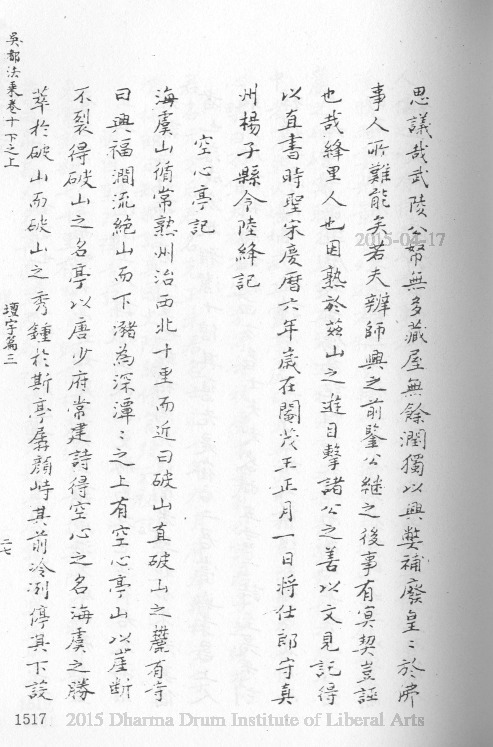 思議哉武陵公帑無多藏屋無餘潤獨以興獘補廢皇〻於佛
事人所難能矣若夫辨師興之前鑒公継之後事有冥契豈誣
也哉絳里人也因熟於茲山之遊目擊諸公之善以文見記得
以直書時聖宋慶曆六年歲在閹茂王正月一日将仕郎守真
州楊子縣令陸絳記
空心亭記
海虞山循常熟州治西北十里而近曰破山直破山之麓有寺
曰興福澗流絶山而下瀦為深潭〻之上有空心亭山以崖斷
不裂得破山之名亭以唐少府常建詩得空心之名海虞之勝
萃於破山而破山之秀鍾於斯亭孱顔峙其前冷冽停其下設
吳都法乘卷十下之上
壇宇篇三
二七
1517
2015-04-17
2015 Dharma Drum Institute of Liberal Arts